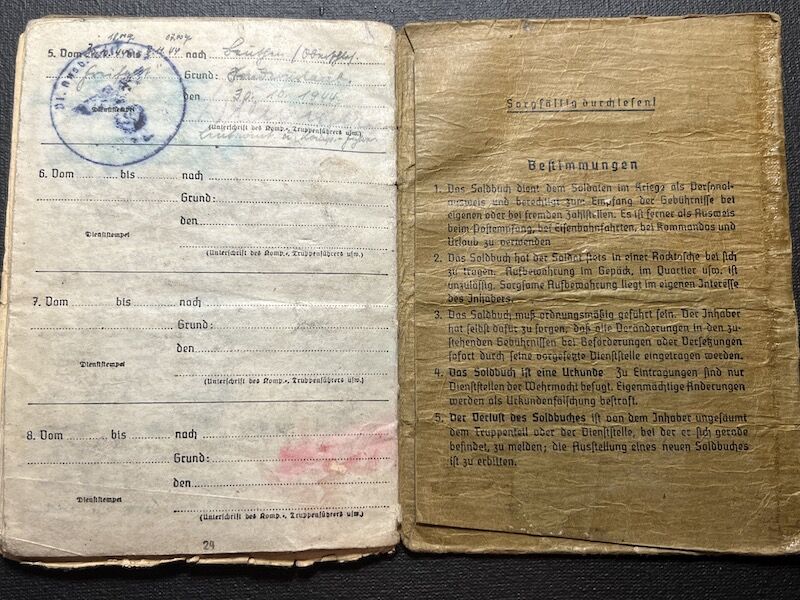 5. Vom bis nach Beuthen / Oberschles.
Grund:
den 30. 10. 1944
Dienststempel
(Unterschrift des Komp.-, Truppenführers usw.)
6. Vom bis nach
Grund:
den
Dienststempel
(Unterschrift des Komp.-, Truppenführers usw.)
7. Vom bis nach
Grund:
den
Dienststempel
(Unterschrift des Komp.-, Truppenführers usw.)
8. Vom bis nach
Grund:
den
Dienststempel
(Unterschrift des Komp.-, Truppenführers usw.)
24
Sorgfältig durchlesen!
Bestimmungen
1. Das Soldbuch dient dem Soldaten im Kriege als Personal-
ausweis und berechtigt zum Empfang der Gebührnisse bei
eigenen oder bei fremden Zahlstellen. Es ist ferner als Ausweis
beim Postempfang, bei Eisenbahnfahrten, bei Kommandos und
Urlaub zu verwenden
2. Das Soldbuch hat der Soldat stets in einer Rocktasche bei sich
zu tragen. Aufbewahrung im Gepäck, im Quartier usw. ist
unzulässig. Sorgsame Aufbewahrung liegt im eigenen Interesse
des Inhabers.
3. Das Soldbuch muß ordnungsmäßig geführt sein. Der Inhaber
hat selbst dafür zu sorgen, daß alle Veränderungen in den zu-
stehenden Gebührnissen bei Beförderungen oder Versetzungen
sofort durch seine vorgesetzte Dienststelle eingetragen werden.
4. Das Soldbuch ist eine Urkunde Zu Eintragungen sind nur
Dienststellen der Wehrmacht befugt. Eigenmächtige Änderungen
werden als Urkundenfälschung bestraft.
5. Der Verlust des Soldbuches ist von dem Inhaber ungesäumt
dem Truppenteil oder der Dienststelle, bei der er sich gerade
befindet, zu melden; die Ausstellung eines neuen Soldbuches
ist zu erbitten.